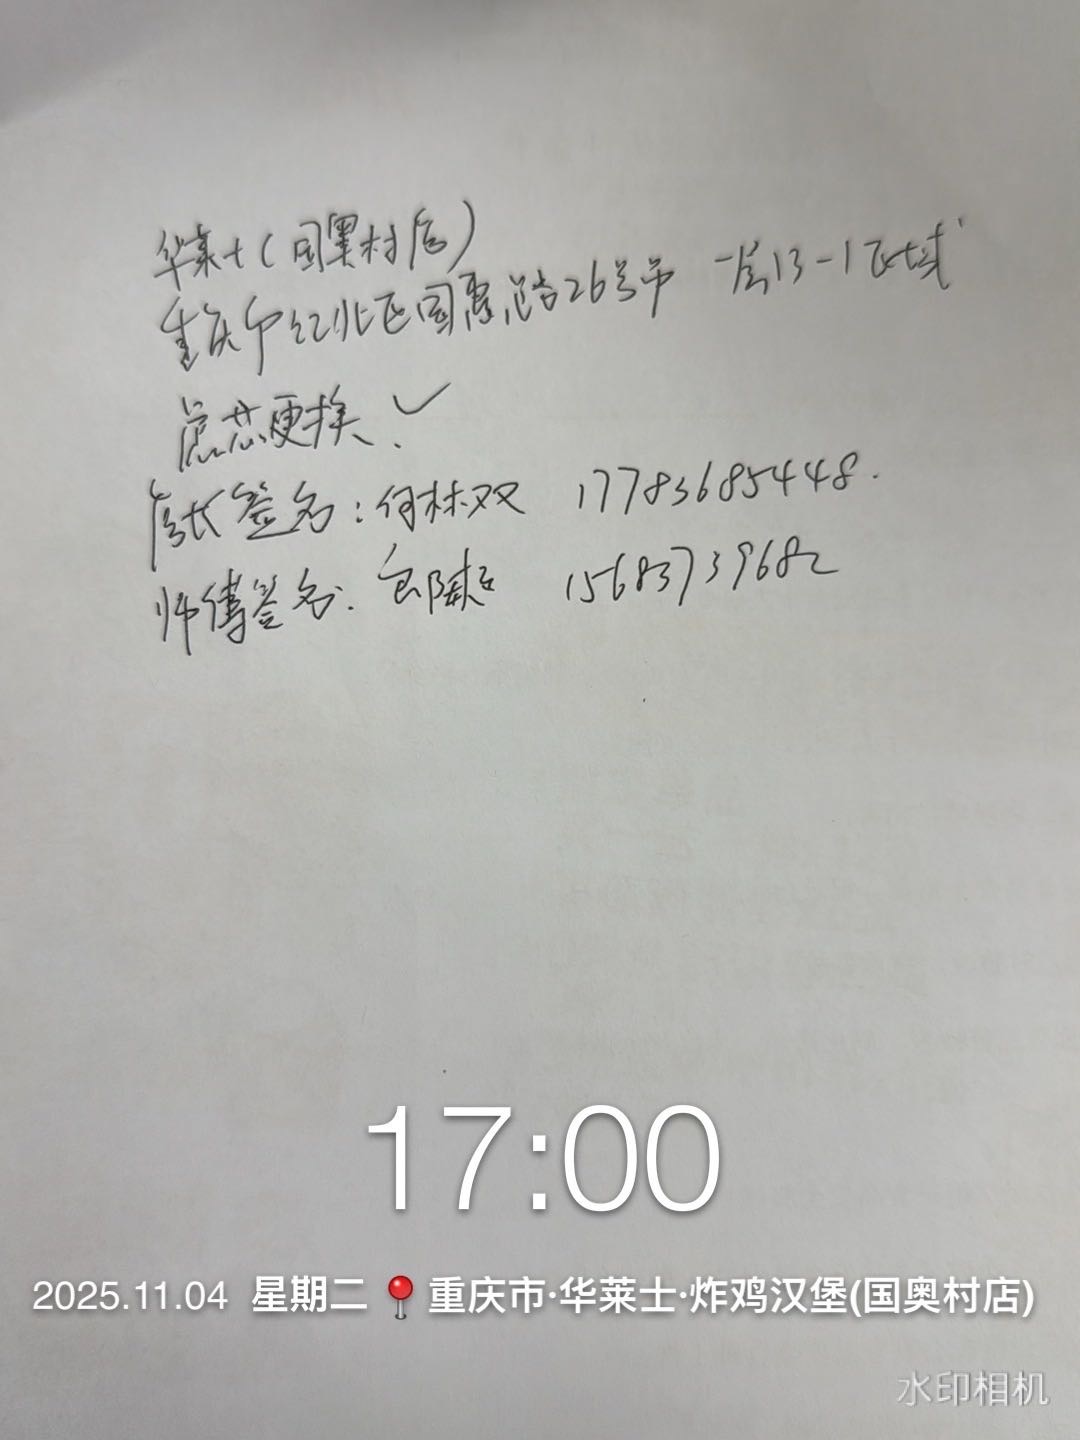 华莱士(国奥村店)
重庆市江北区国惠路26号第一层13-1区域
滤芯更换.✓
店长签名:何林双 17783685448.
师傅签名: 15683739682
17:00
2025.11.04 星期二 重庆市·华莱士·炸鸡汉堡(国奥村店)
水印相机